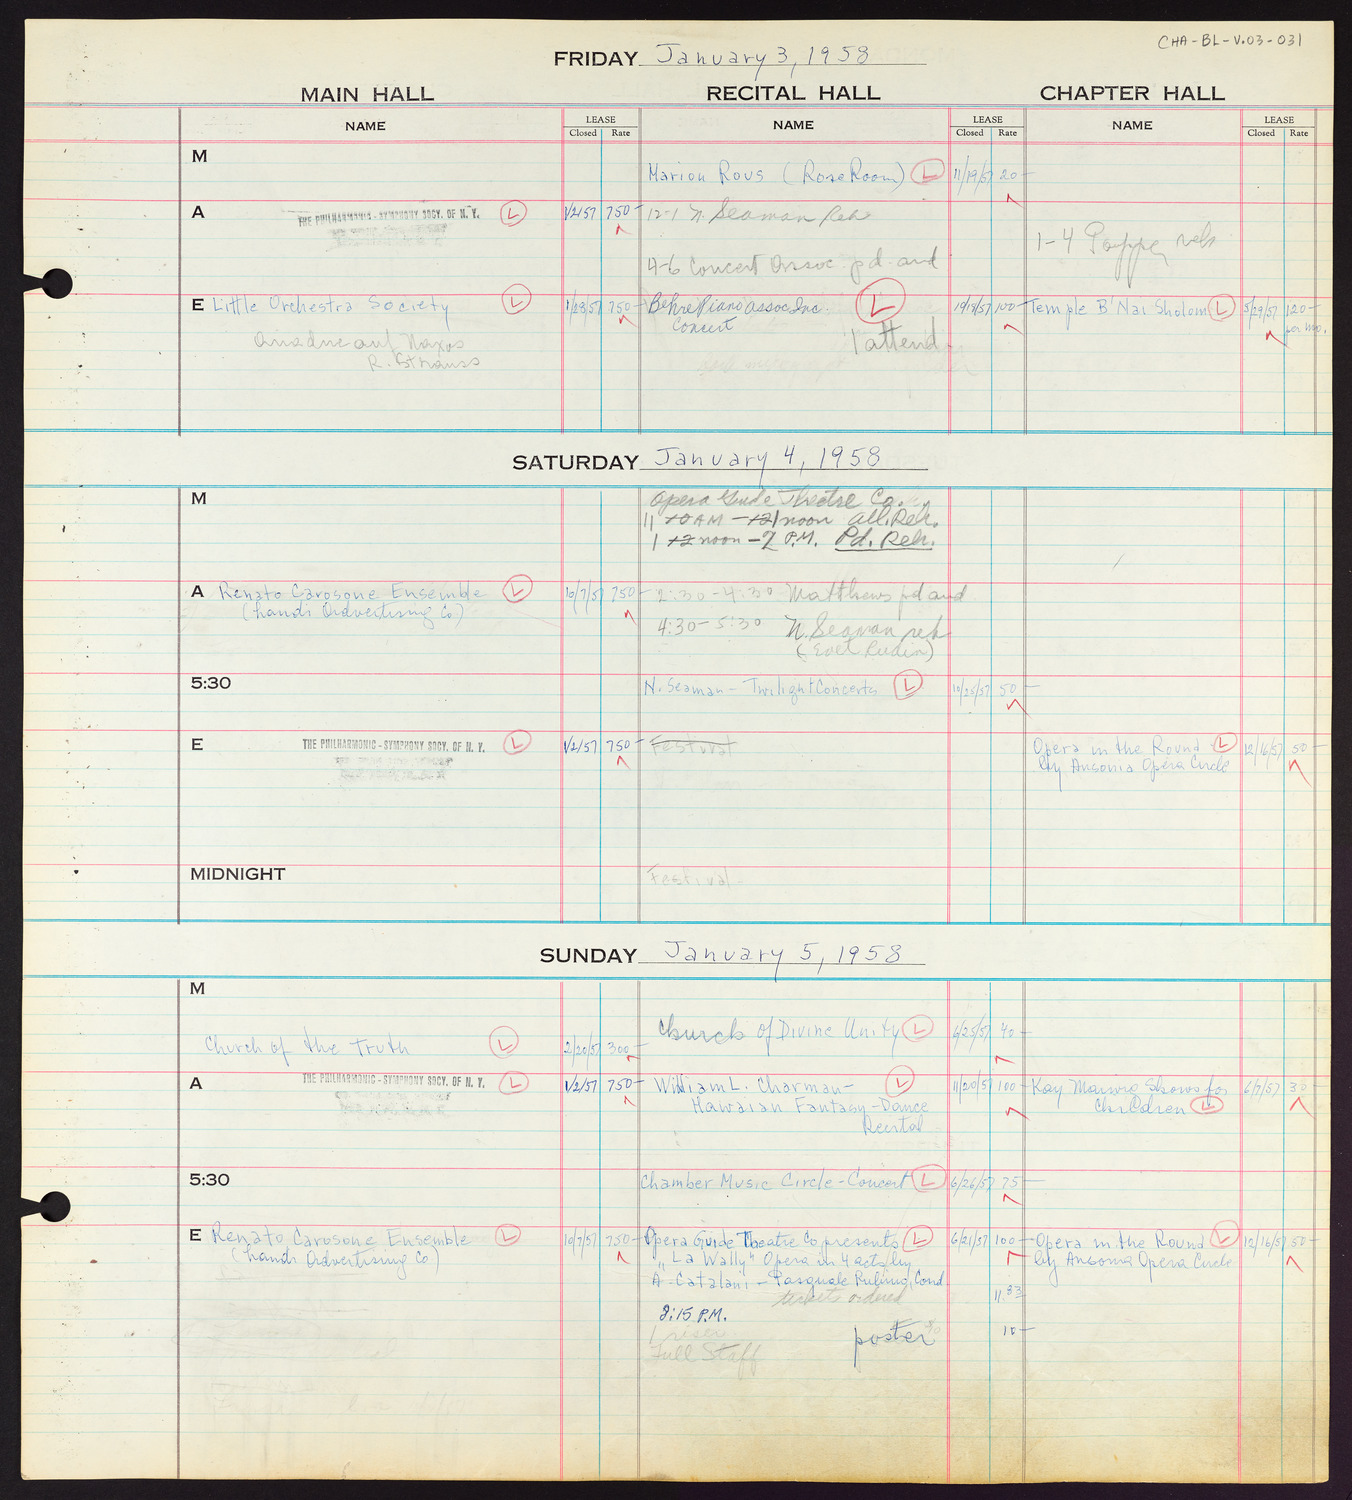 CHA-BL-V.03-031
FRIDAY January 3, 1958
MAIN HALL RECITAL HALL CHAPTER HALL
NAME LEASE Closed Rate NAME LEASE Closed Rate NAME LEASE Closed Rate
M
Marion Rous (Rose Room) L 11/19/57 20-
A THE PHILHARMONIC-SYMPHONY SOCY. OF N. Y. L 1/2/57 750- 12-1 N. Seaman Reh
1-4 Poppe reh
4-6 Concert Assoc pd. aud
E Little Orchestra Society L 1/28/57 750- Behre Piano Assoc Inc. L 100- Temple B'Nai Sholom L 5/29/57 120-
Concert per mo.
Ariadne auf Naxos 1 attend.
R. Strauss
SATURDAY January 4, 1958
M Opera Guide Theatre Co.
11 10 AM - 12 1 noon all. Reh.
1 12 noon - 2 P.M. Pd. Reh.
A Renato Carosone Ensemble L 10/7/57 750- 2:30-4:30 Matthews pd aud
(Landi Advertising Co)
4:30-5:30 N. Seaman reh
(Evet Rudin)
5:30 N. Seaman - Twilight Concerts L 10/25/57 50-
E THE PHILHARMONIC-SYMPHONY SOCY. OF N. Y. L 1/2/57 750- Festival Opera in the Round L 12/16/57 50-
by Ansonia Opera Circle
MIDNIGHT Festival
SUNDAY January 5, 1958
M
Church of Divine Unity L 6/25/57 40-
Church of the Truth L 2/20/57 300-
A THE PHILHARMONIC-SYMPHONY SOCY. OF N. Y. L 1/2/57 750- William L. Charman- L 11/20/57 100- Kay Mawrg Shows for 6/7/57
Hawaian Fantasy-Dance Children L
Recital
5:30 Chamber Music Circle-Concert L 6/26/57 75-
E Renato Carosone Ensemble L 10/7/57 750- Opera Guide Theatre Co presents L 6/21/57 100- Opera in the Round L 12/16/57 50-
(Landi Advertising Co) "La Wally" Opera in 4 acts by by Ansonia Opera Circle
A. Catalani - Pasquale Rubino, Cond
tickets ordered 11.33
8:15 P.M.
1 riser poster 10-
Full Staff